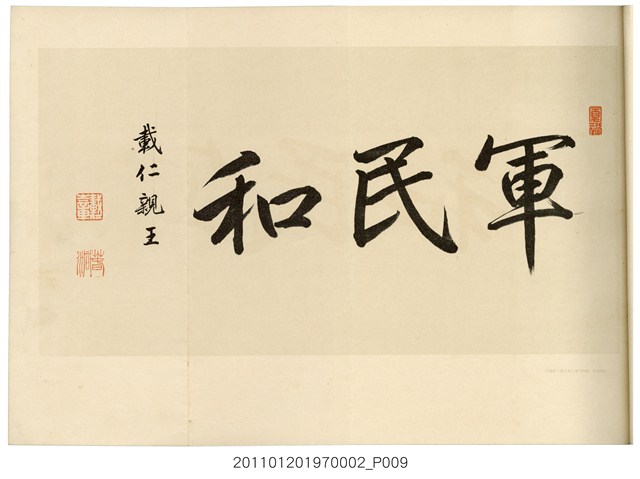 軍民和
載仁親王
201101201970002_P009